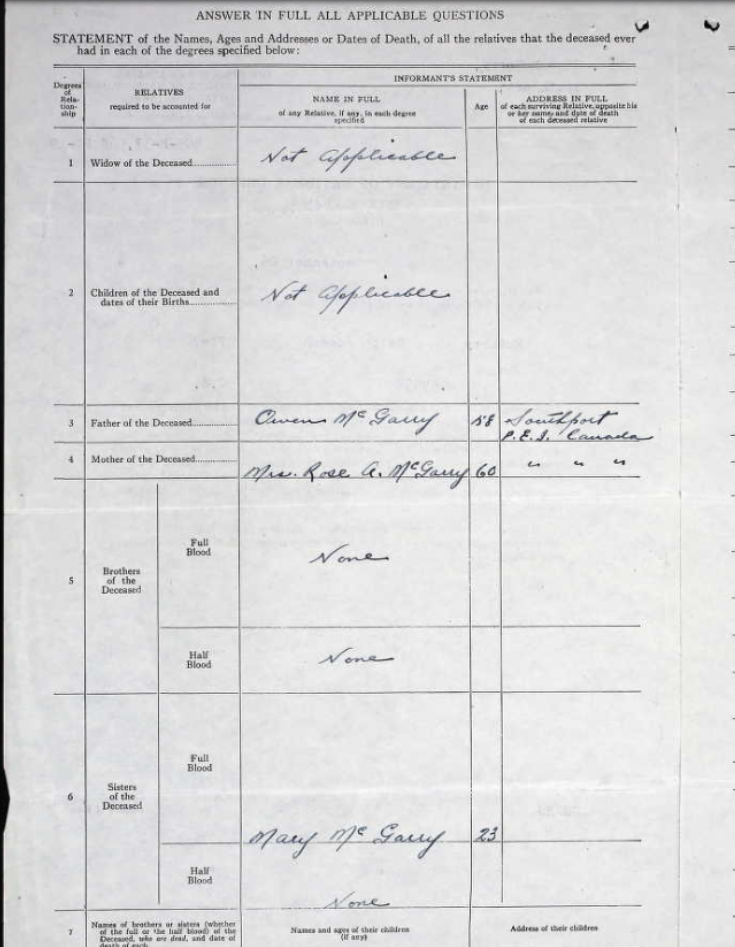 ANSWER IN FULL ALL APPLICABLE QUESTIONS
STATEMENT of the Names, Ages and Addresses or Dates of Death, of all the relatives that the deceased ever
had in each of the degrees specified below:
Degrees
of
Rela-
tion-
ship
RELATIVES
required to be accounted for
INFORMANT'S STATEMENT
NAME IN FULL
of any Relative, if any, in each degree
specified
Age
ADDRESS IN FULL
of each surviving Relative, opposite his
or her name, and date of death
of each deceased relative
1 Widow of the Deceased............ Not Applicable
2 Children of the Deceased and
dates of their Births............ Not Applicable
3 Father of the Deceased............ Owen McGarry 58 Southport
P.E.I. Canada
4 Mother of the Deceased............ Mrs. Rose A. McGarry 60 " " "
5 Brothers
of the
Deceased
Full
Blood
None
Half
Blood
None
6 Sisters
of the
Deceased
Full
Blood
Mary McGarry 23
Half
Blood
None
7 Names of brothers or sisters (whether
of the full or the half blood) of the
Deceased, who are dead, and date of
death of each
Names and ages of their children
(if any)
Address of their children